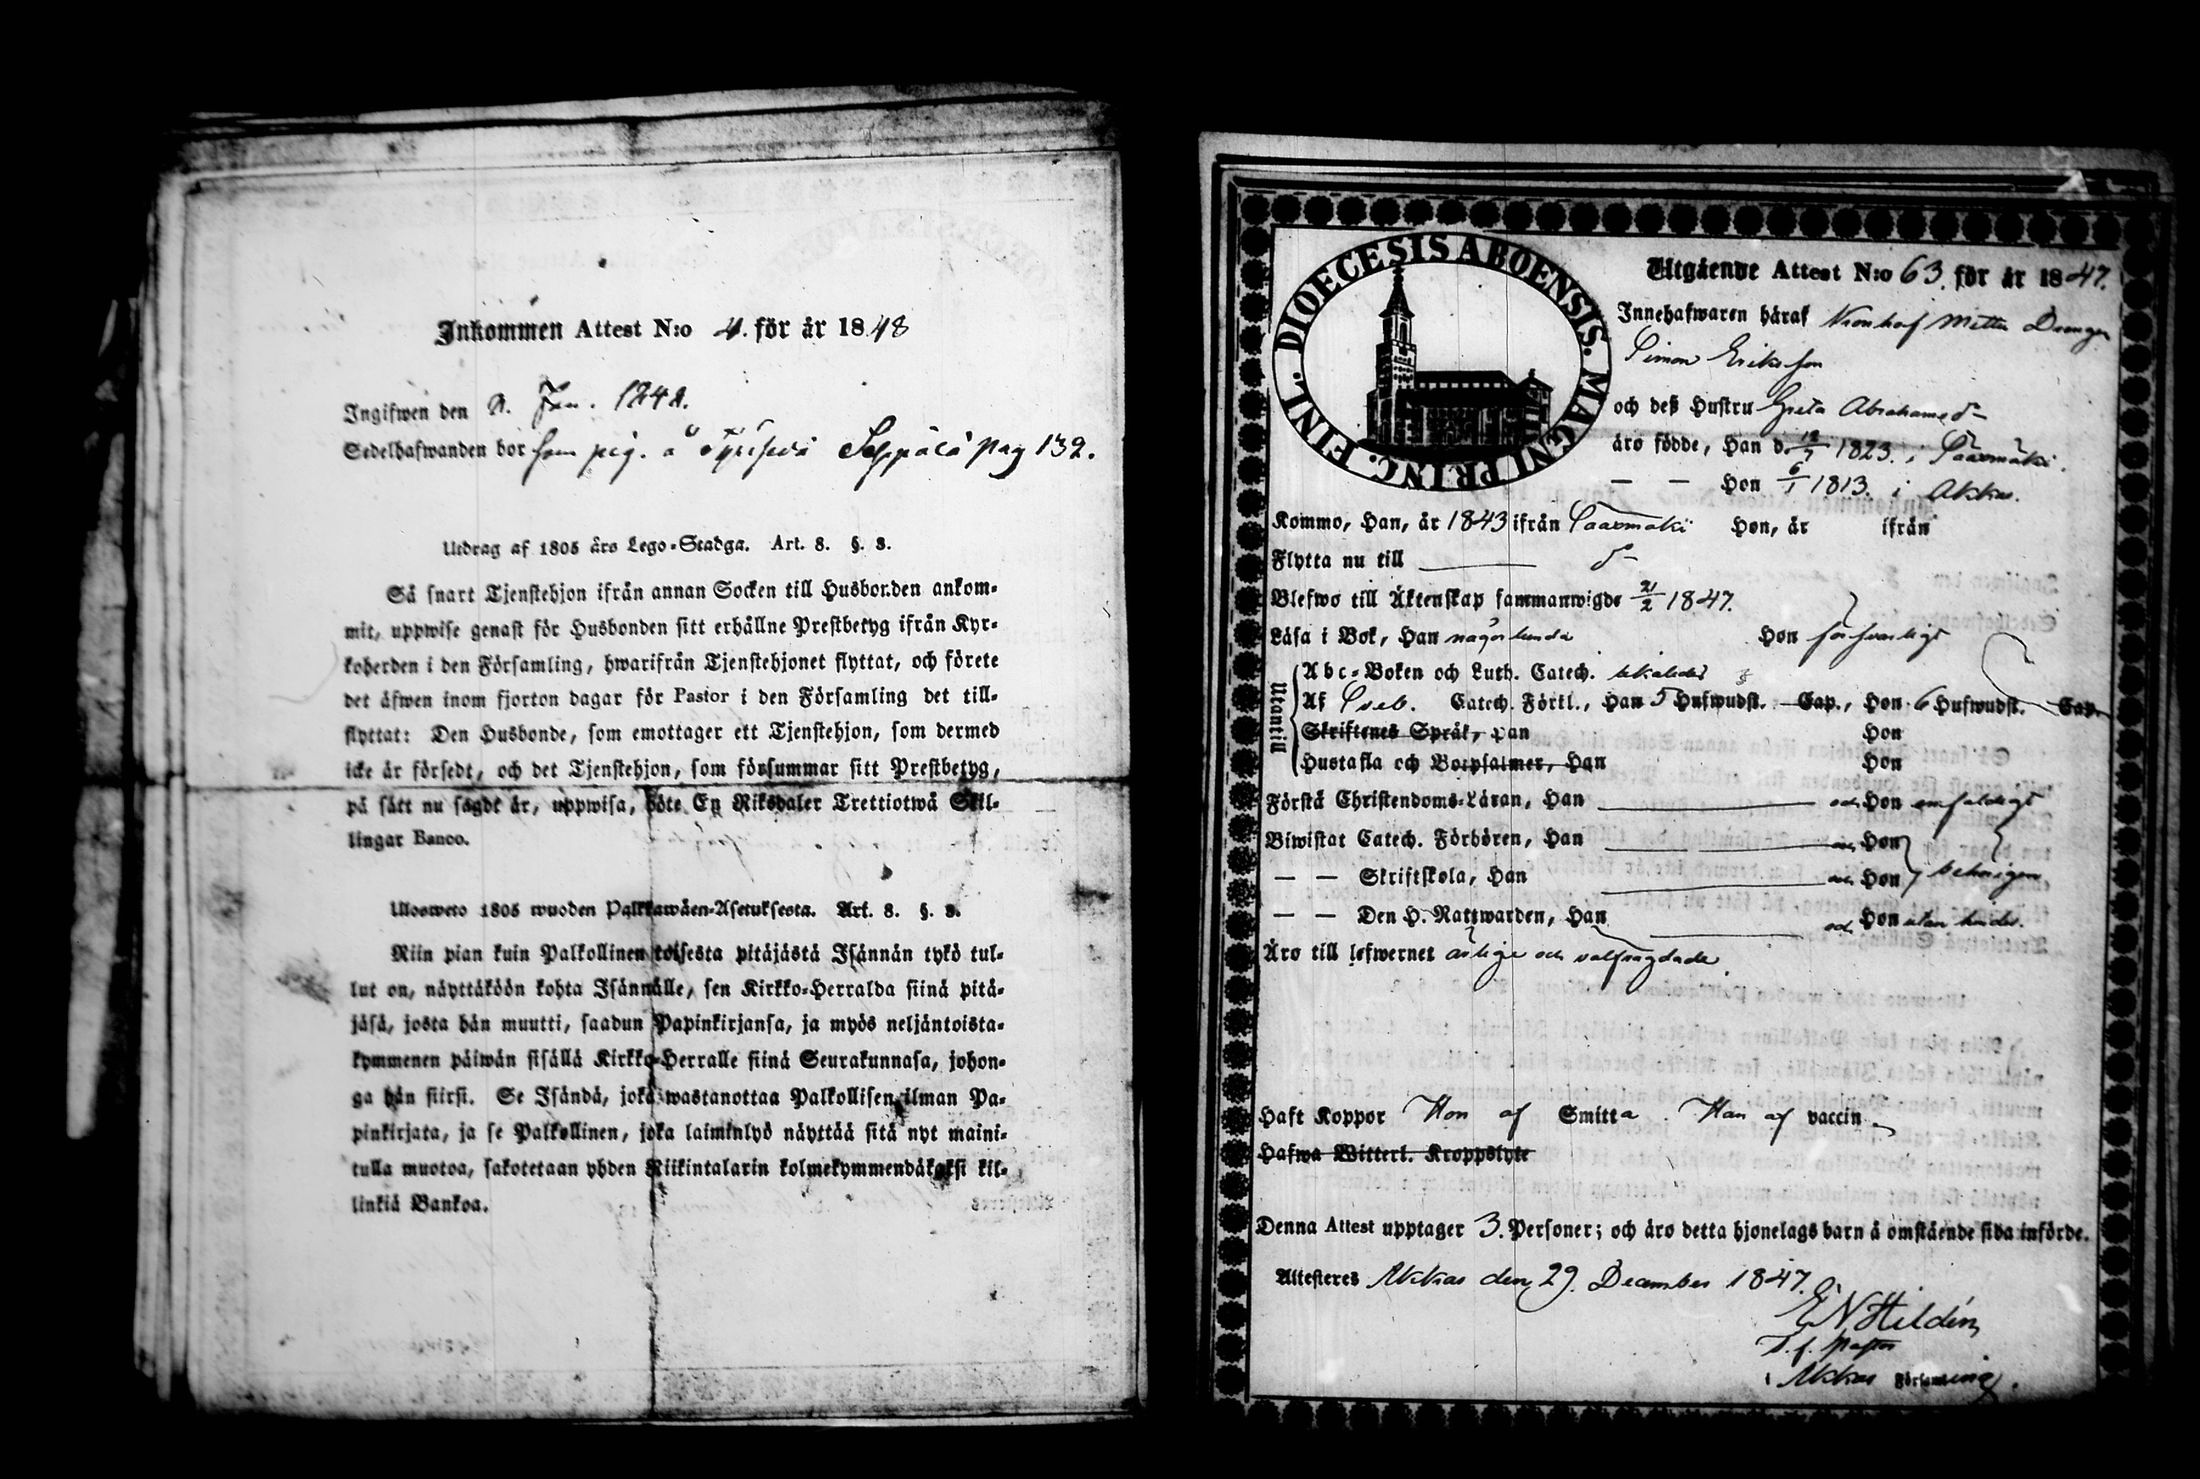 Inkommen Attest N:o 4. för år 1848
Ingifwen den 2. Jan. 1848.
Sedelhafwanden bor som pig. å Seppälä pag 132.
Utdrag af 1805 års Lego-Stadga. Art. 8. §. 3.
Så snart Tjenstehjon ifrån annan Socken till Husbonden ankom-
mit, uppwise genast för Husbonden sitt erhållne Prestbetyg ifrån Kyr-
koherden i den Församling, hwarifrån Tjenstehjonet flyttat, och förete
det äfwen inom fjorton dagar för Pastor i den Församling det till-
flyttat: Den Husbonde, som emottager ett Tjenstehjon, som dermed
icke är försedt, och det Tjenstehjon, som försummar sitt Prestbetyg,
på sätt nu sagdt är, uppwisa, böte En Riksdaler Trettiotwå Skil-
lingar Banco.
Ulosweto 1805 wuoden Palkkawäen-Asetuksesta. Art. 8. §. 3.
Niin pian kuin Palkollinen toisesta pitäjästä Isännän tykö tul-
lut on, näyttäköön kohta Isännälle, sen Kirkko-Herralda siinä pitä-
jäsä, josta hän muutti, saadun Papinkirjansa, ja myös neljäntoista-
kymmenen päiwän sisällä Kirkko-Herralle siinä Seurakunnasa, johon-
ga hän siirsi. Se Isändä, joka wastanottaa Palkollisen ilman Pa-
pinkirjata, ja se Palkollinen, joka laiminlyö näyttää sitä nyt maini-
tulla muotoa, sakotetaan yhden Riikintalarin kolmekymmendäkaksi kil-
linkiä Bankoa.
DIOECESIS ABOENSIS. MAGNI PRINC. FINL.
Utgående Attest N:o 63. för år 1847.
Innehafwaren häraf Drengen
Simon Eriksson
och deß Hustru Greta Abrahamsd
äro födde, Han d. 12/7 1823. i Saarmäki.
— — Hon 6/1 1813. i Akkas.
Kommo, Han, år 1843 ifrån Saarmäki Hon, år ifrån
Flytta nu till
Blefwo till Äktenskap sammanwigde 21/2 1847.
Läsa i Bok, Han någorlunda Hon försvarligt
Utantill
Abc-Boken och Luth. Catech.
Af Sveb. Catech. Förkl., Han 5 Hufwudst. Cap., Hon 6 Hufwudst. Cap.
Skriftenes Språk, Han Hon
Hustafla och Botpsalmer, Han Hon
Förstå Christendoms-Läran, Han och Hon enfaldigt
Biwistat Catech. Förhören, Han och Hon
— — Skriftskola, Han och Hon behörigen
— — Den H. Nattwarden, Han och Hon utan hinder.
Äro till lefwernet ärlige och välfrägdade.
Haft Koppor Hon af Smitta. Han af vaccin
Hafwa Witterl. Kroppslyte
Denna Attest upptager 3. Personer; och äro detta hjonelags barn å omstående sida införde.
Attesteres Akkas den 29. December 1847.
E N Hildén
T. f. Pastor
i Akkas Församling.